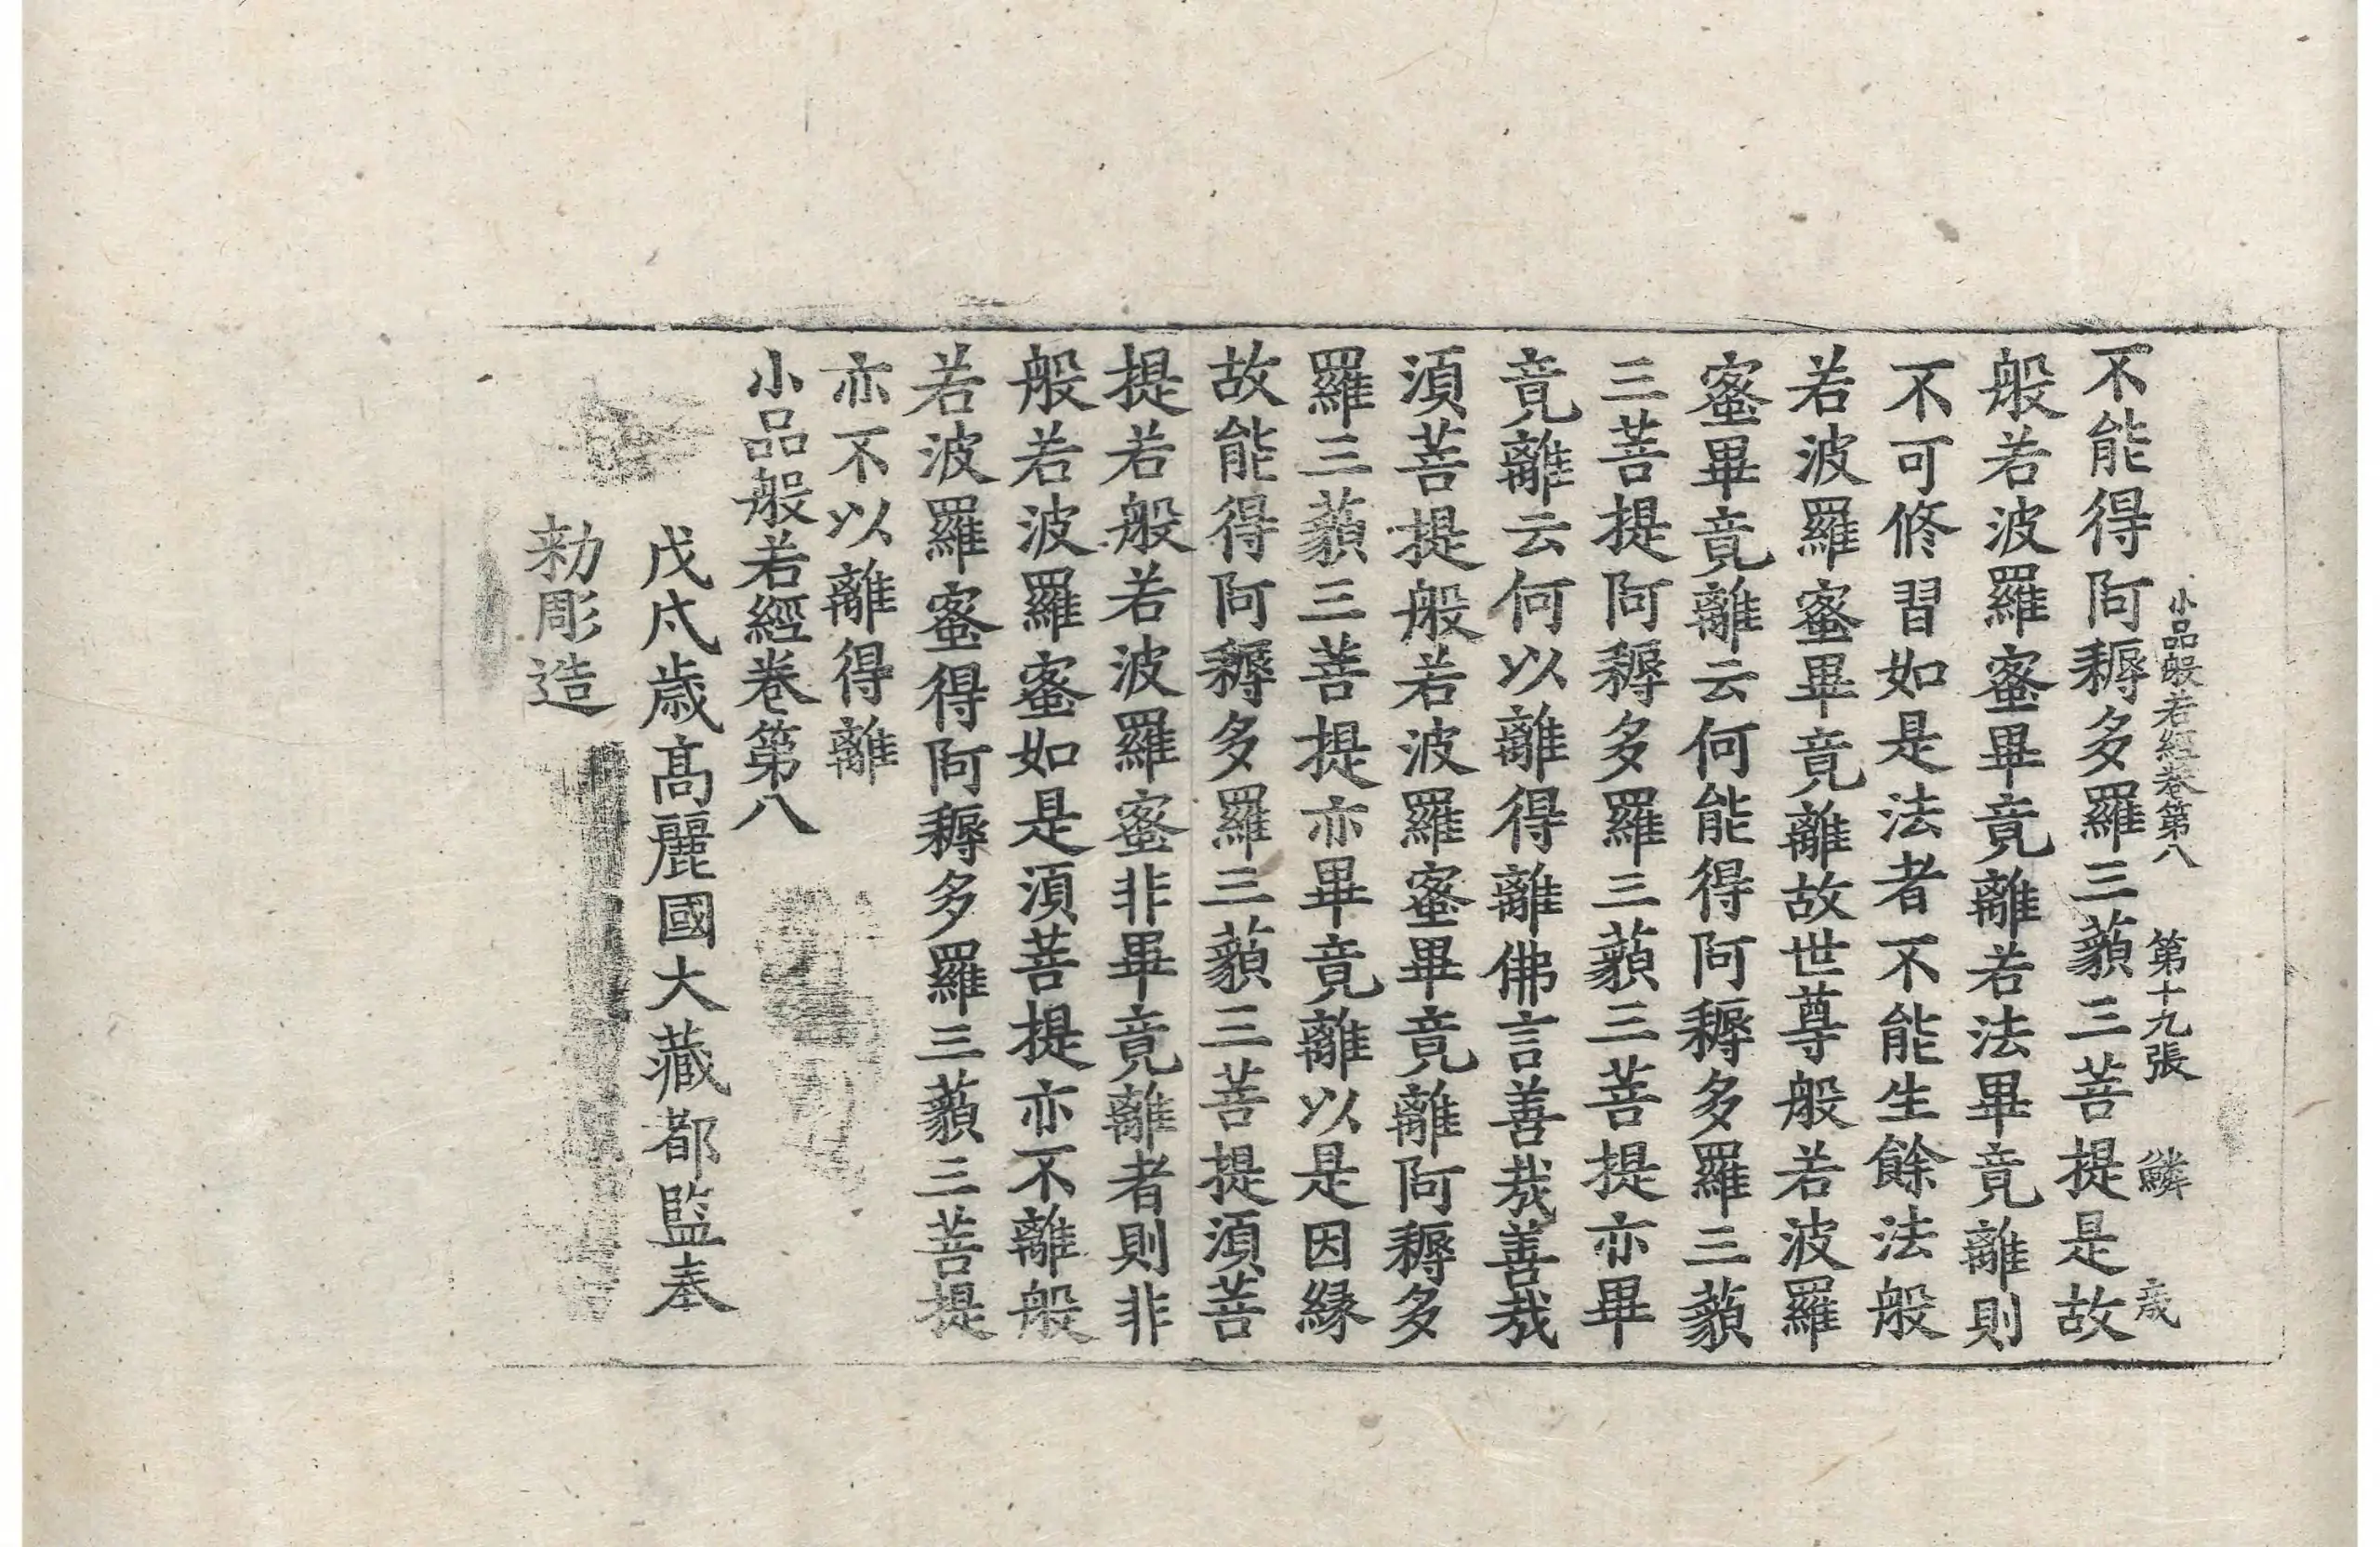 小品般若經卷第八 第十九張 鱗 歲
不能得阿耨多羅三藐三菩提是故
般若波羅蜜畢竟離若法畢竟離則
不可修習如是法者不能生餘法般
若波羅蜜畢竟離故世尊般若波羅
蜜畢竟離云何能得阿耨多羅三藐
三菩提阿耨多羅三藐三菩提亦畢
竟離云何以離得離佛言善哉善哉
須菩提般若波羅蜜畢竟離阿耨多
羅三藐三菩提亦畢竟離以是因緣
故能得阿耨多羅三藐三菩提須菩
提若般若波羅蜜非畢竟離者則非
般若波羅蜜如是須菩提亦不離般
若波羅蜜得阿耨多羅三藐三菩提
亦不以離得離
小品般若經卷第八
戊戌歲高麗國大藏都監奉
勑彫造